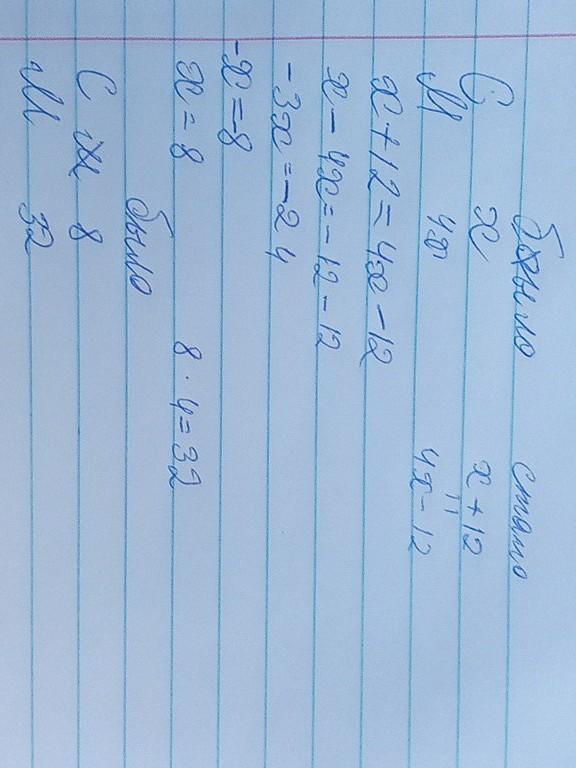 Было стало
С x x+12
М 4x 4x-12
x+12=4x-12
x-4x=-12-12
-3x=-24
-x=-8
x=8 8·4=32
было
С 8
М 32